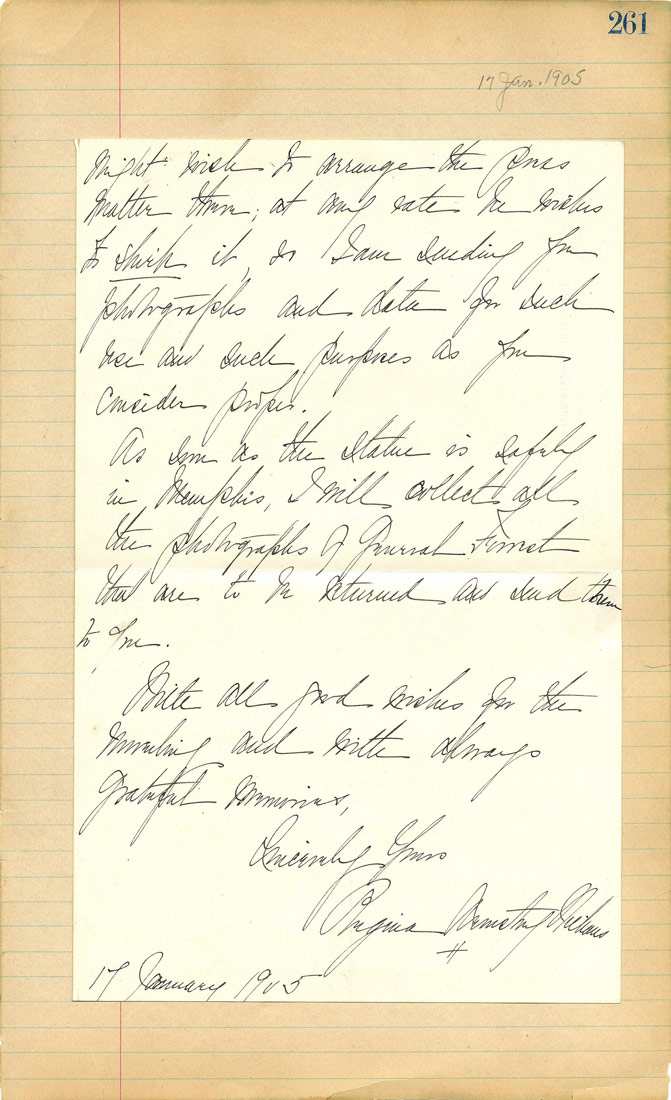 261
17 Jan. 1905
might wish to arrange the press
matter there; at any rate he wishes
to shirk it, so I am sending you
photographs and data for such
use and such purposes as you
consider proper.
As soon as the statue is safely
in Memphis, I will collect all
the photographs of General Forrest
that are to be returned and send them
to you.
With all good wishes for the
unveiling and with always
grateful memories,
Sincerely Yours
Regina Armstrong Niehaus
17 January 1905